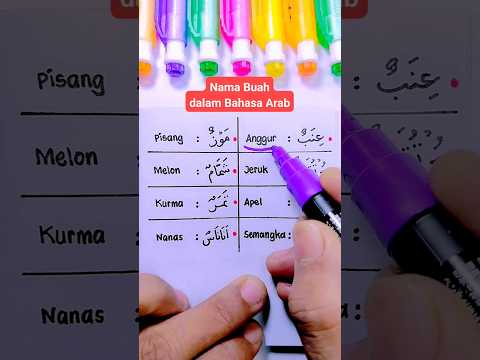 Nama Buah
dalam Bahasa Arab
Pisang : مَوْزٌ Anggur : عِنَبٌ
Melon : شَمَّامٌ Jeruk :
Kurma : تَمْرٌ Apel :
Nanas : أَنَانَاسٌ Semangka :
Pisang
Melon
Kurma
Nanas
عِنَبٌ